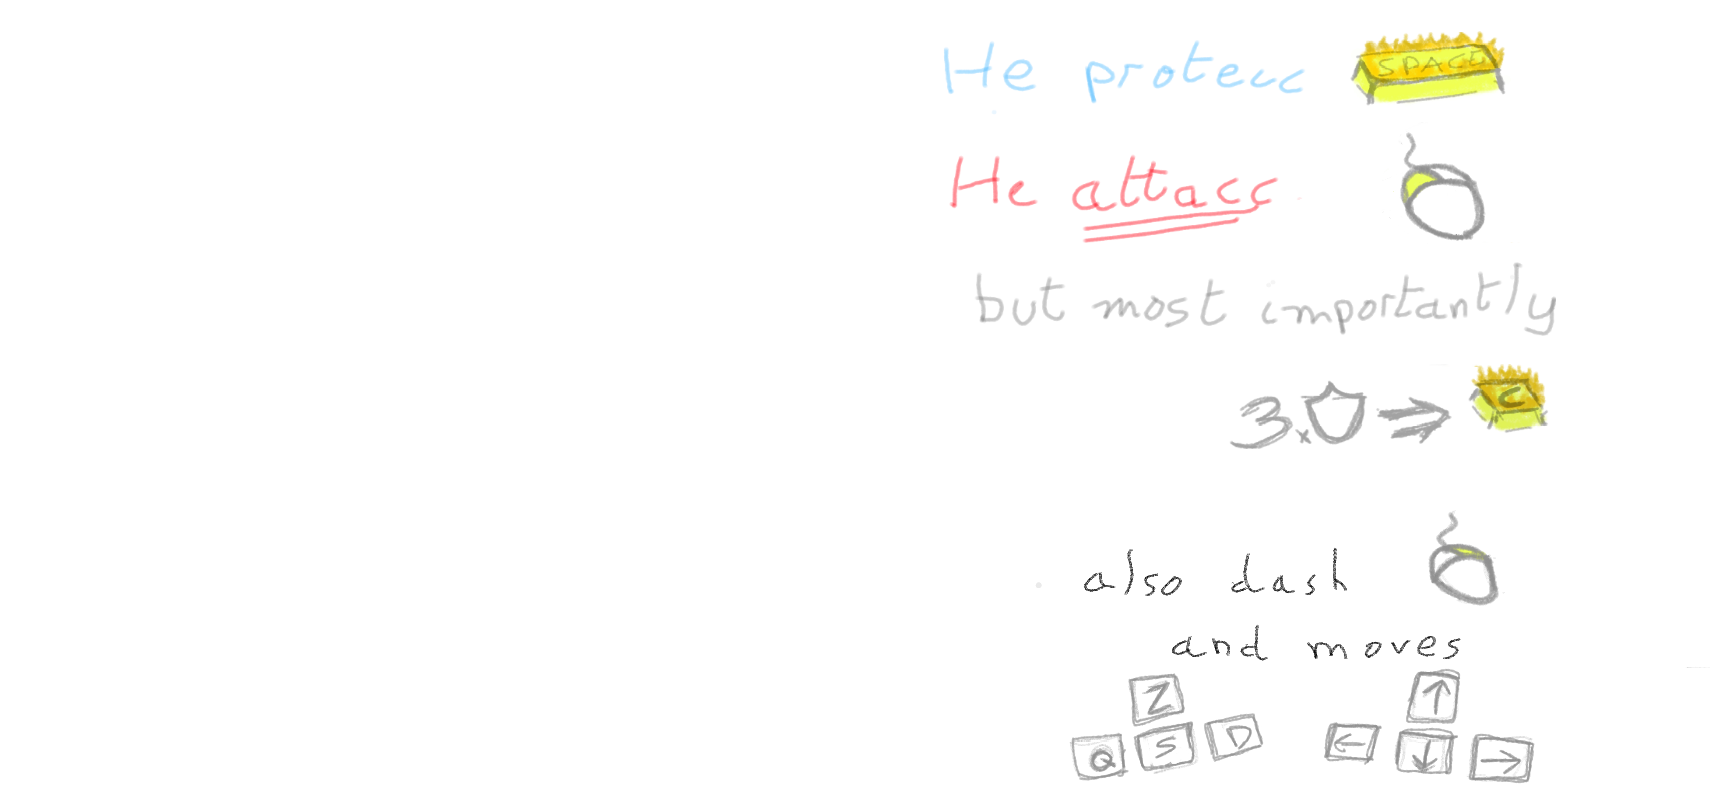 He protecc SPACE
He attacc
but most importantly
3x ⇒ C
also dash
and moves
Z ↑
Q S D ← ↓ →